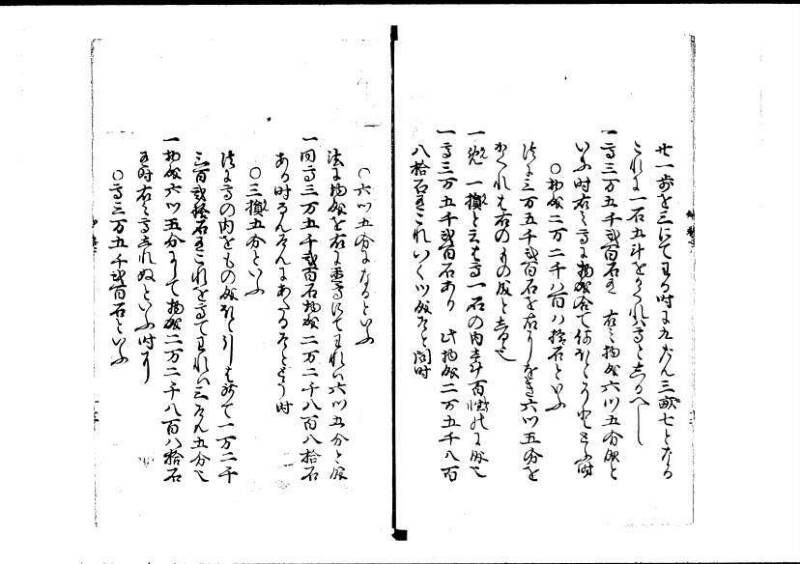 廿一歩を三にてわる時に九たん三畝七となる
これに一石五斗をかくれハ高としるへし
一高三万五千弐百石 右之物成六ツ五分成と
いふ時右之高に物成合て何ほと
〇物成二万二千八百八拾石といふ
法に三万五千弐百石を右にをき六ツ五分を
かくれは右のもの成としる也
一免 一 と云は高一石の内
一高三万五千弐百石あり 此物成二万五千八百
八拾石 これいくツ成そと問時
〇六ツ五分になるといふ
法に物成を右に高にてわれハ六ツ五分と成
一同高三万五千弐百石物成二万二千八百八拾石
ある時 そんにあたるそととう時
〇三 五分といふ
法に高の内をもの成ほと引は残て一万二千
三百弐拾石 これを高てわれハ三そん五分也
一物成六ツ五分にして物成二万二千八百八拾石
時右之高しれぬといふ時に
〇高三万五千弐百石といふ